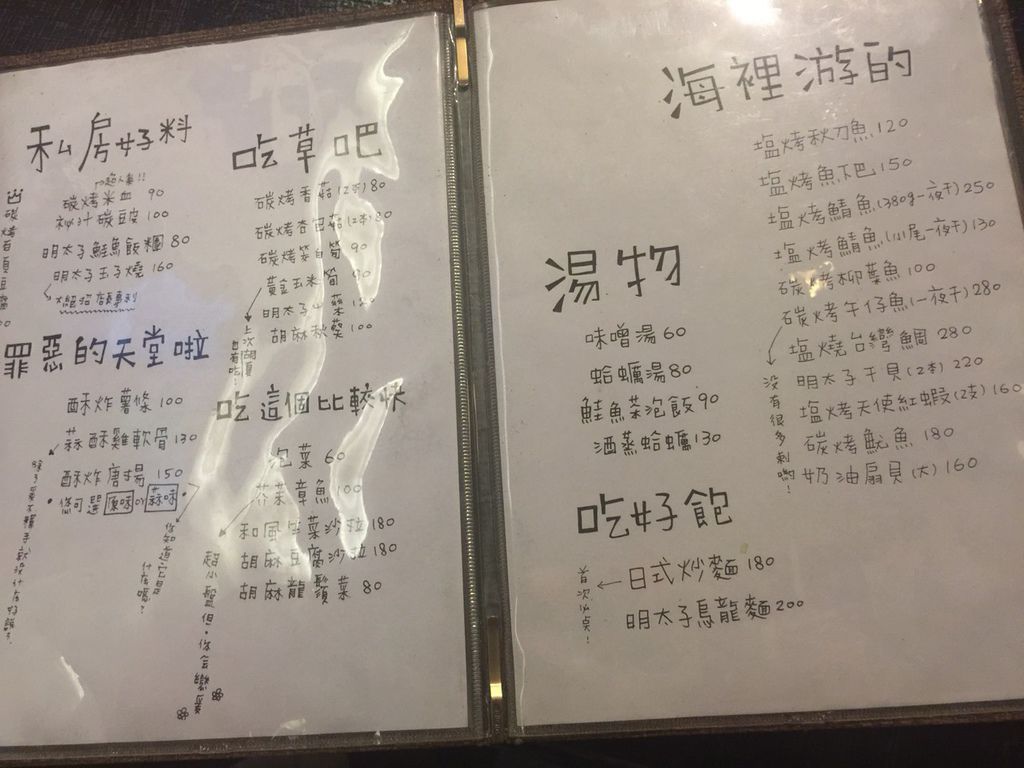 私房好料
超人氣!!
碳烤米血 90
祕汁碳豆皮 100
明太子鮭魚飯糰 80
明太子玉子燒 160
大絕招店專利
罪惡的天堂啦
酥炸薯條 100
蒜酥雞軟骨 130
酥炸唐揚 150
您可選 原味 or 蒜味
你知道它是
什在嗎?
吃草吧
碳烤香菇(2本) 80
碳烤杏包菇(2本) 80
碳烤筊白筍 90
黃金玉米筍 90
明太子山藥 120
胡麻秋葵 100
吃這個比較快
泡菜 60
芥茉章魚 100
和風生菜沙拉 180
胡麻豆腐沙拉 180
胡麻龍鬚菜 80
超小盤但,你會戀愛
海裡游的
塩烤秋刀魚 120
塩烤魚下巴 150
塩烤鯖魚(380g一夜干) 250
塩烤鯖魚(小小尾一夜干) 130
碳烤柳葉魚 100
碳烤午仔魚(一夜干) 280
塩燒台灣鯛 280
明太子干貝(2本) 220
塩烤天使紅蝦(2支) 160
碳烤魷魚 180
奶油扇貝(大) 160
沒有很多刺喲!
湯物
味噌湯 60
蛤蠣湯 80
鮭魚菜泡飯 90
酒蒸蛤蠣 130
吃好飽
日式炒麵 180
首次必点!
明太子烏龍麵 200